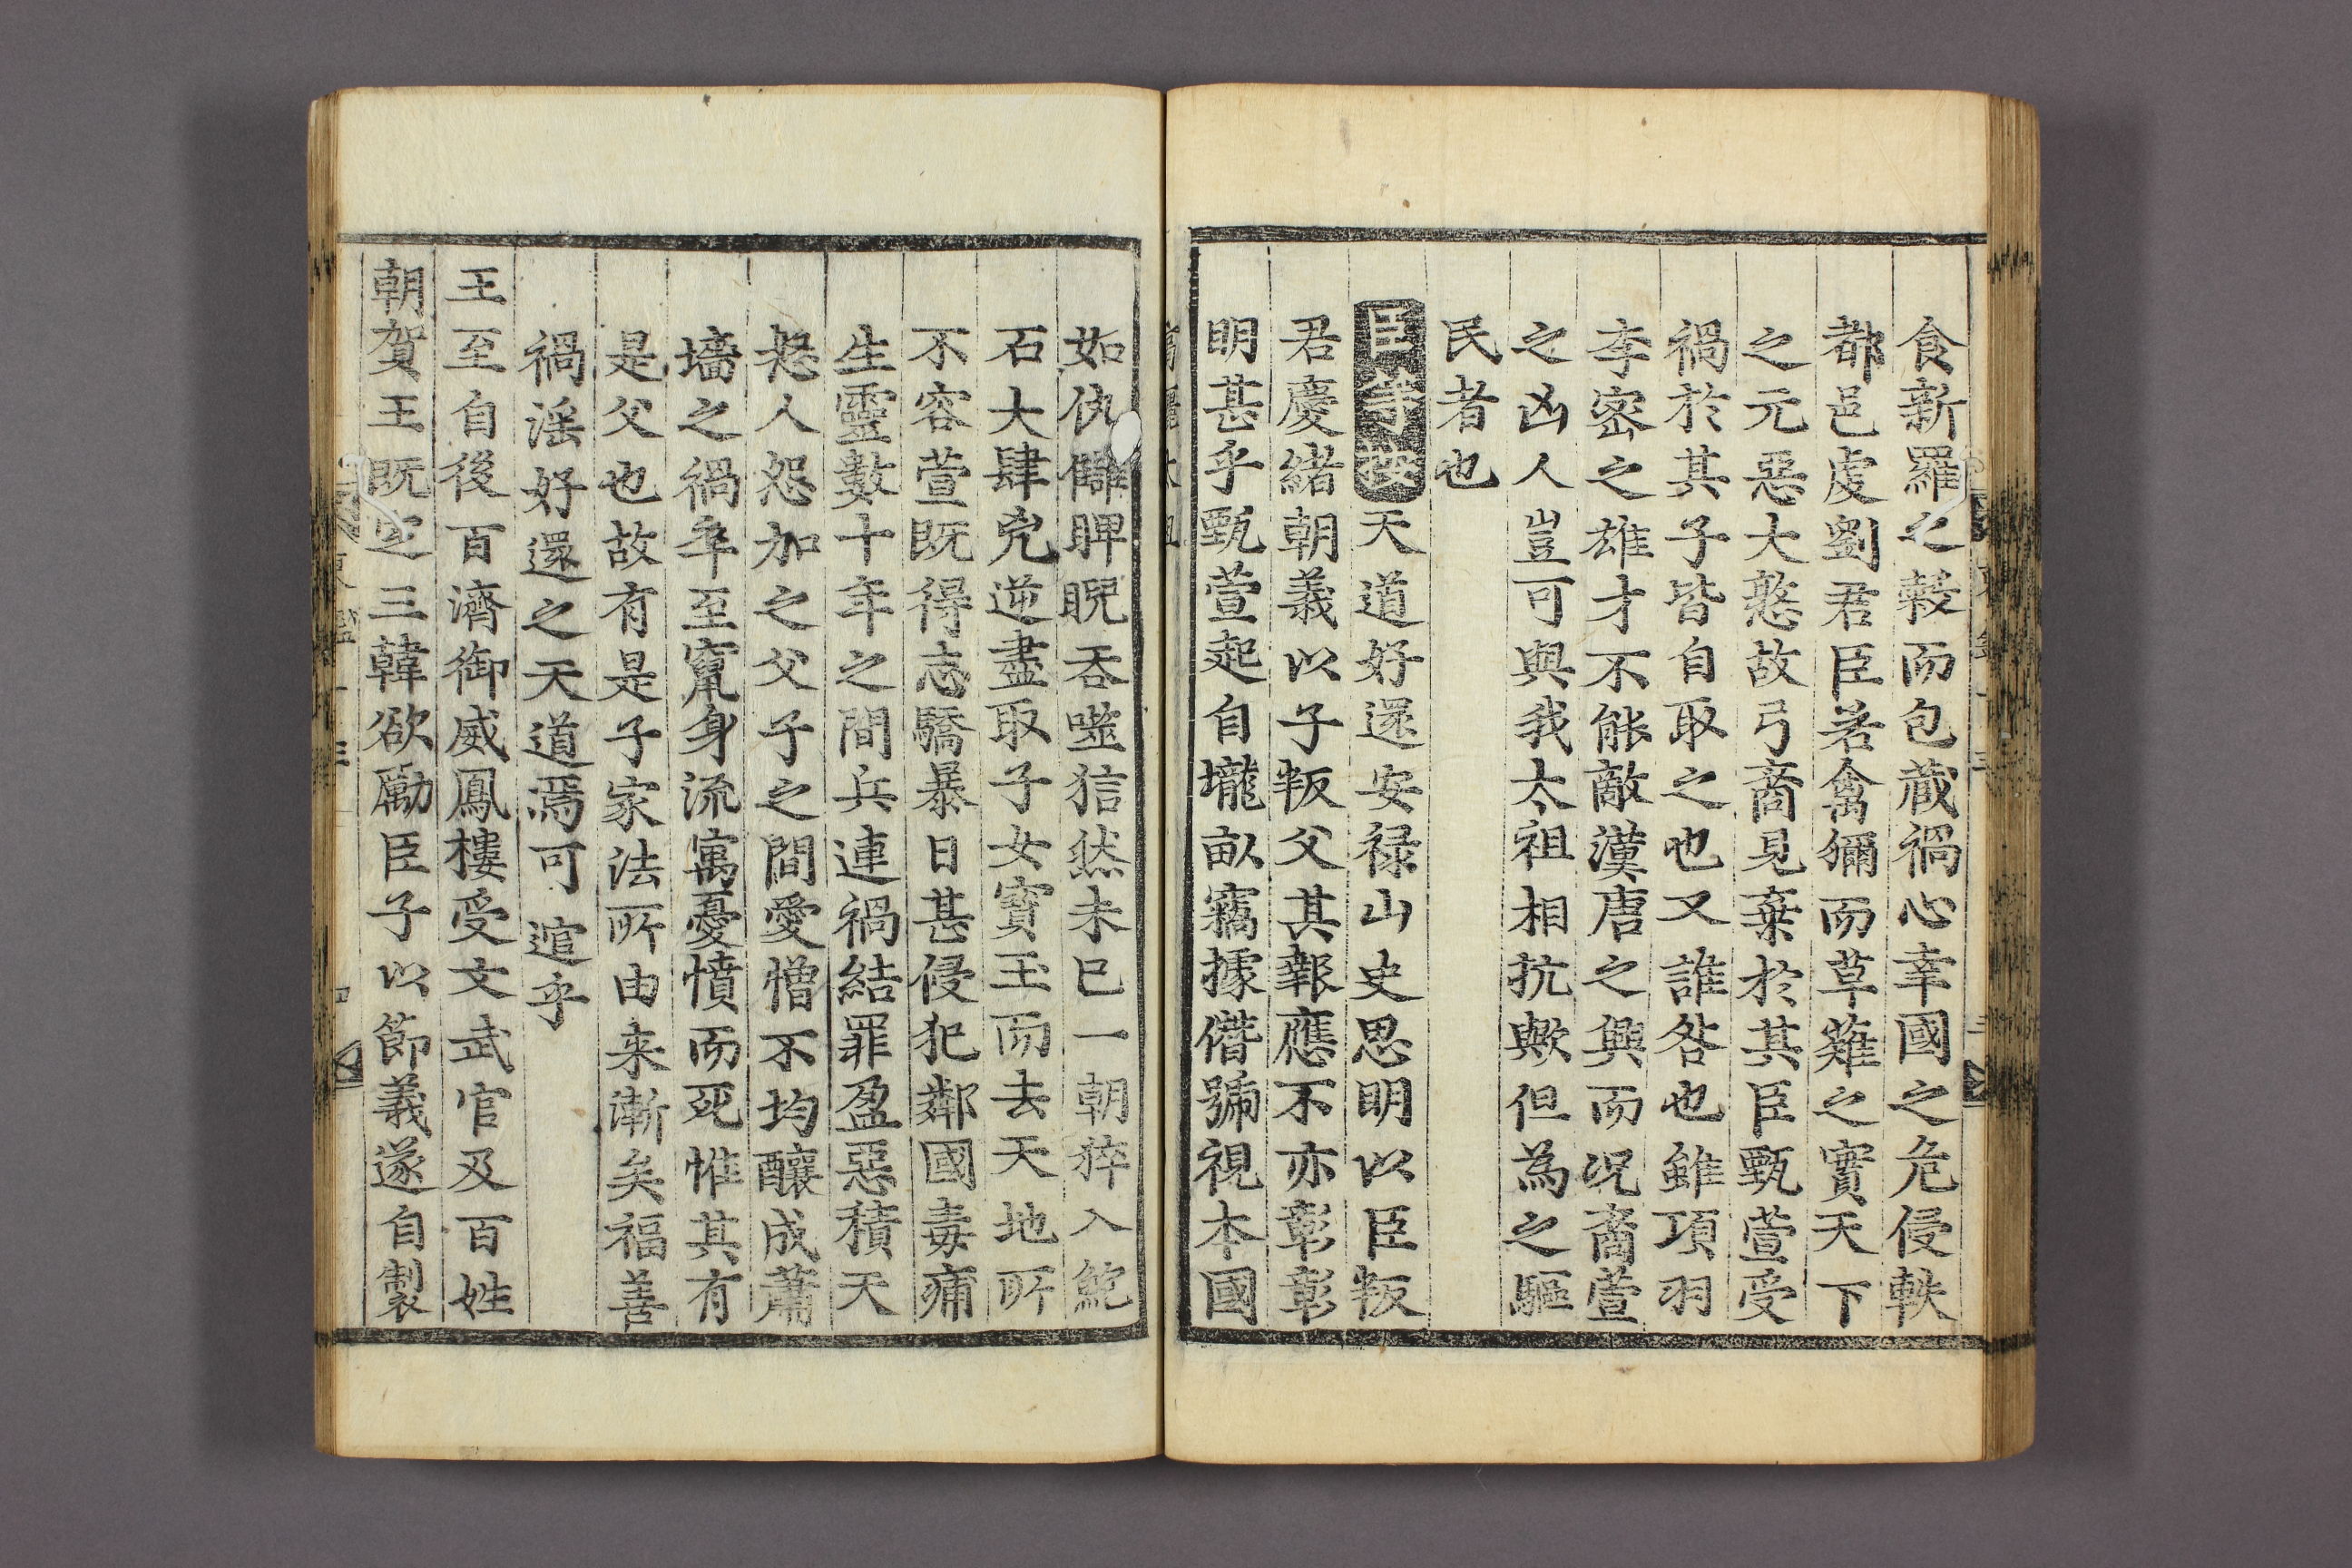 食新羅之穀而包蔵禍心幸國之危侵軼
都邑虔劉君臣若禽獮而草薙之實天下
之元惡大憝故弓裔見棄於其臣甄萱受
禍於其子皆自取之也又誰咎也雖項羽
李密之雄才不能敵漢唐之興而况裔萱
之凶人豈可與我太祖相抗歟但為之驅
民者也
臣等按天道好還安禄山史思明以臣叛
君慶緒朝義以子叛父其報應不亦彰彰
明甚乎甄萱起自壠畝竊據僭號視本國
如仇讎睥睨吞噬狺然未已一朝猝入鮑
石大肆兇逆盡取子女寶玉而去天地所
不容萱既得志驕暴日甚侵犯鄰國毒痡
生靈數十年之間兵連禍結罪盈惡積天
怒人怨加之父子之間愛憎不均釀成蕭
墻之禍卒至竄身流寓憂憤而死惟其有
是父也故有是子家法所由来漸矣福善
禍淫好還之天道焉可逭乎
王至自後百濟御威鳳樓受文武官及百姓
朝賀王既定三韓欲勵臣子以節義遂自製